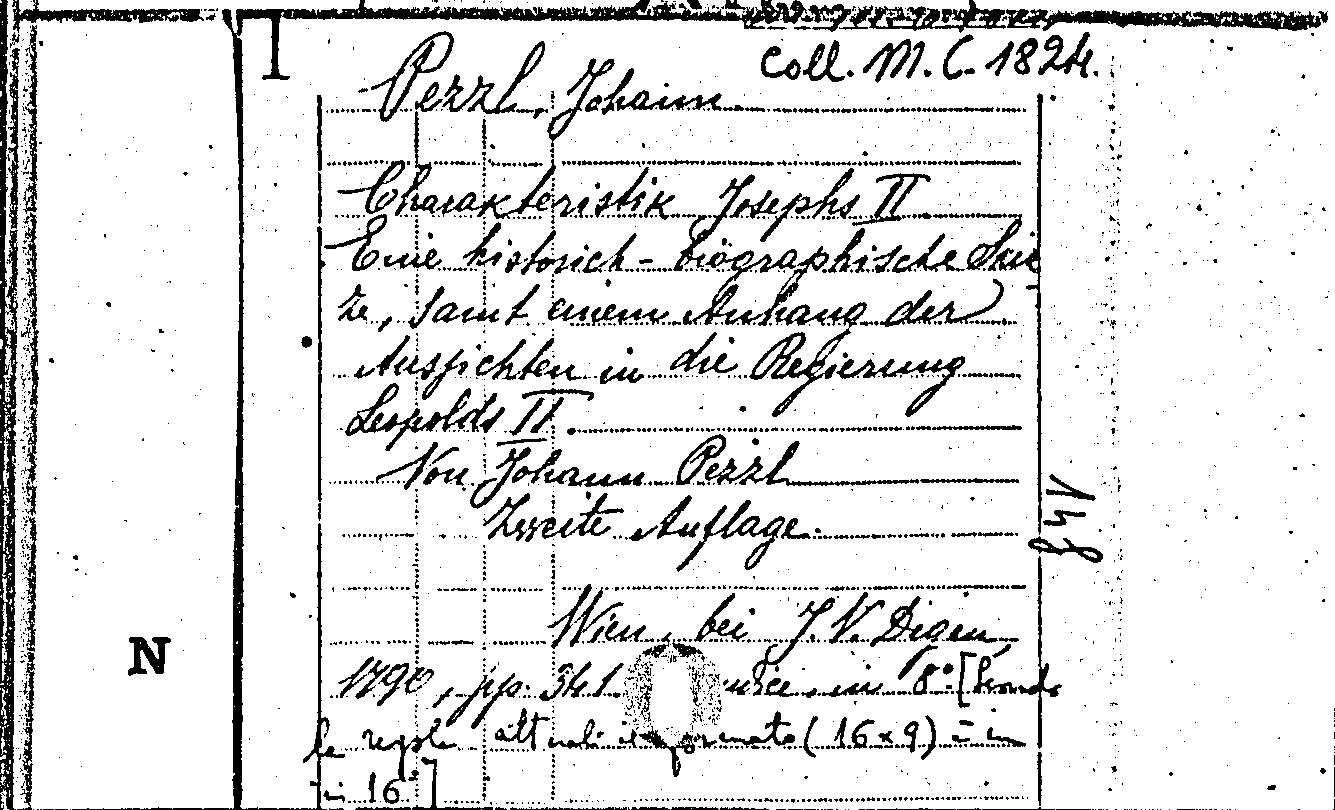 Coll. M. C. 1824.
Pezzl, Johann.
Charakteristik Josephs II.
Eine historich - biographische Skiz
ze, samt einem Anhang der
Aussichten in die Regierung
Leopolds II.
Von Johann Pezzl
Zweite Auflage.
Wien, bei J. V. Degen,
1790, pp. 341. in 8° [secondo
le regole attuali il formato (16×9) = in
in 16°]
N